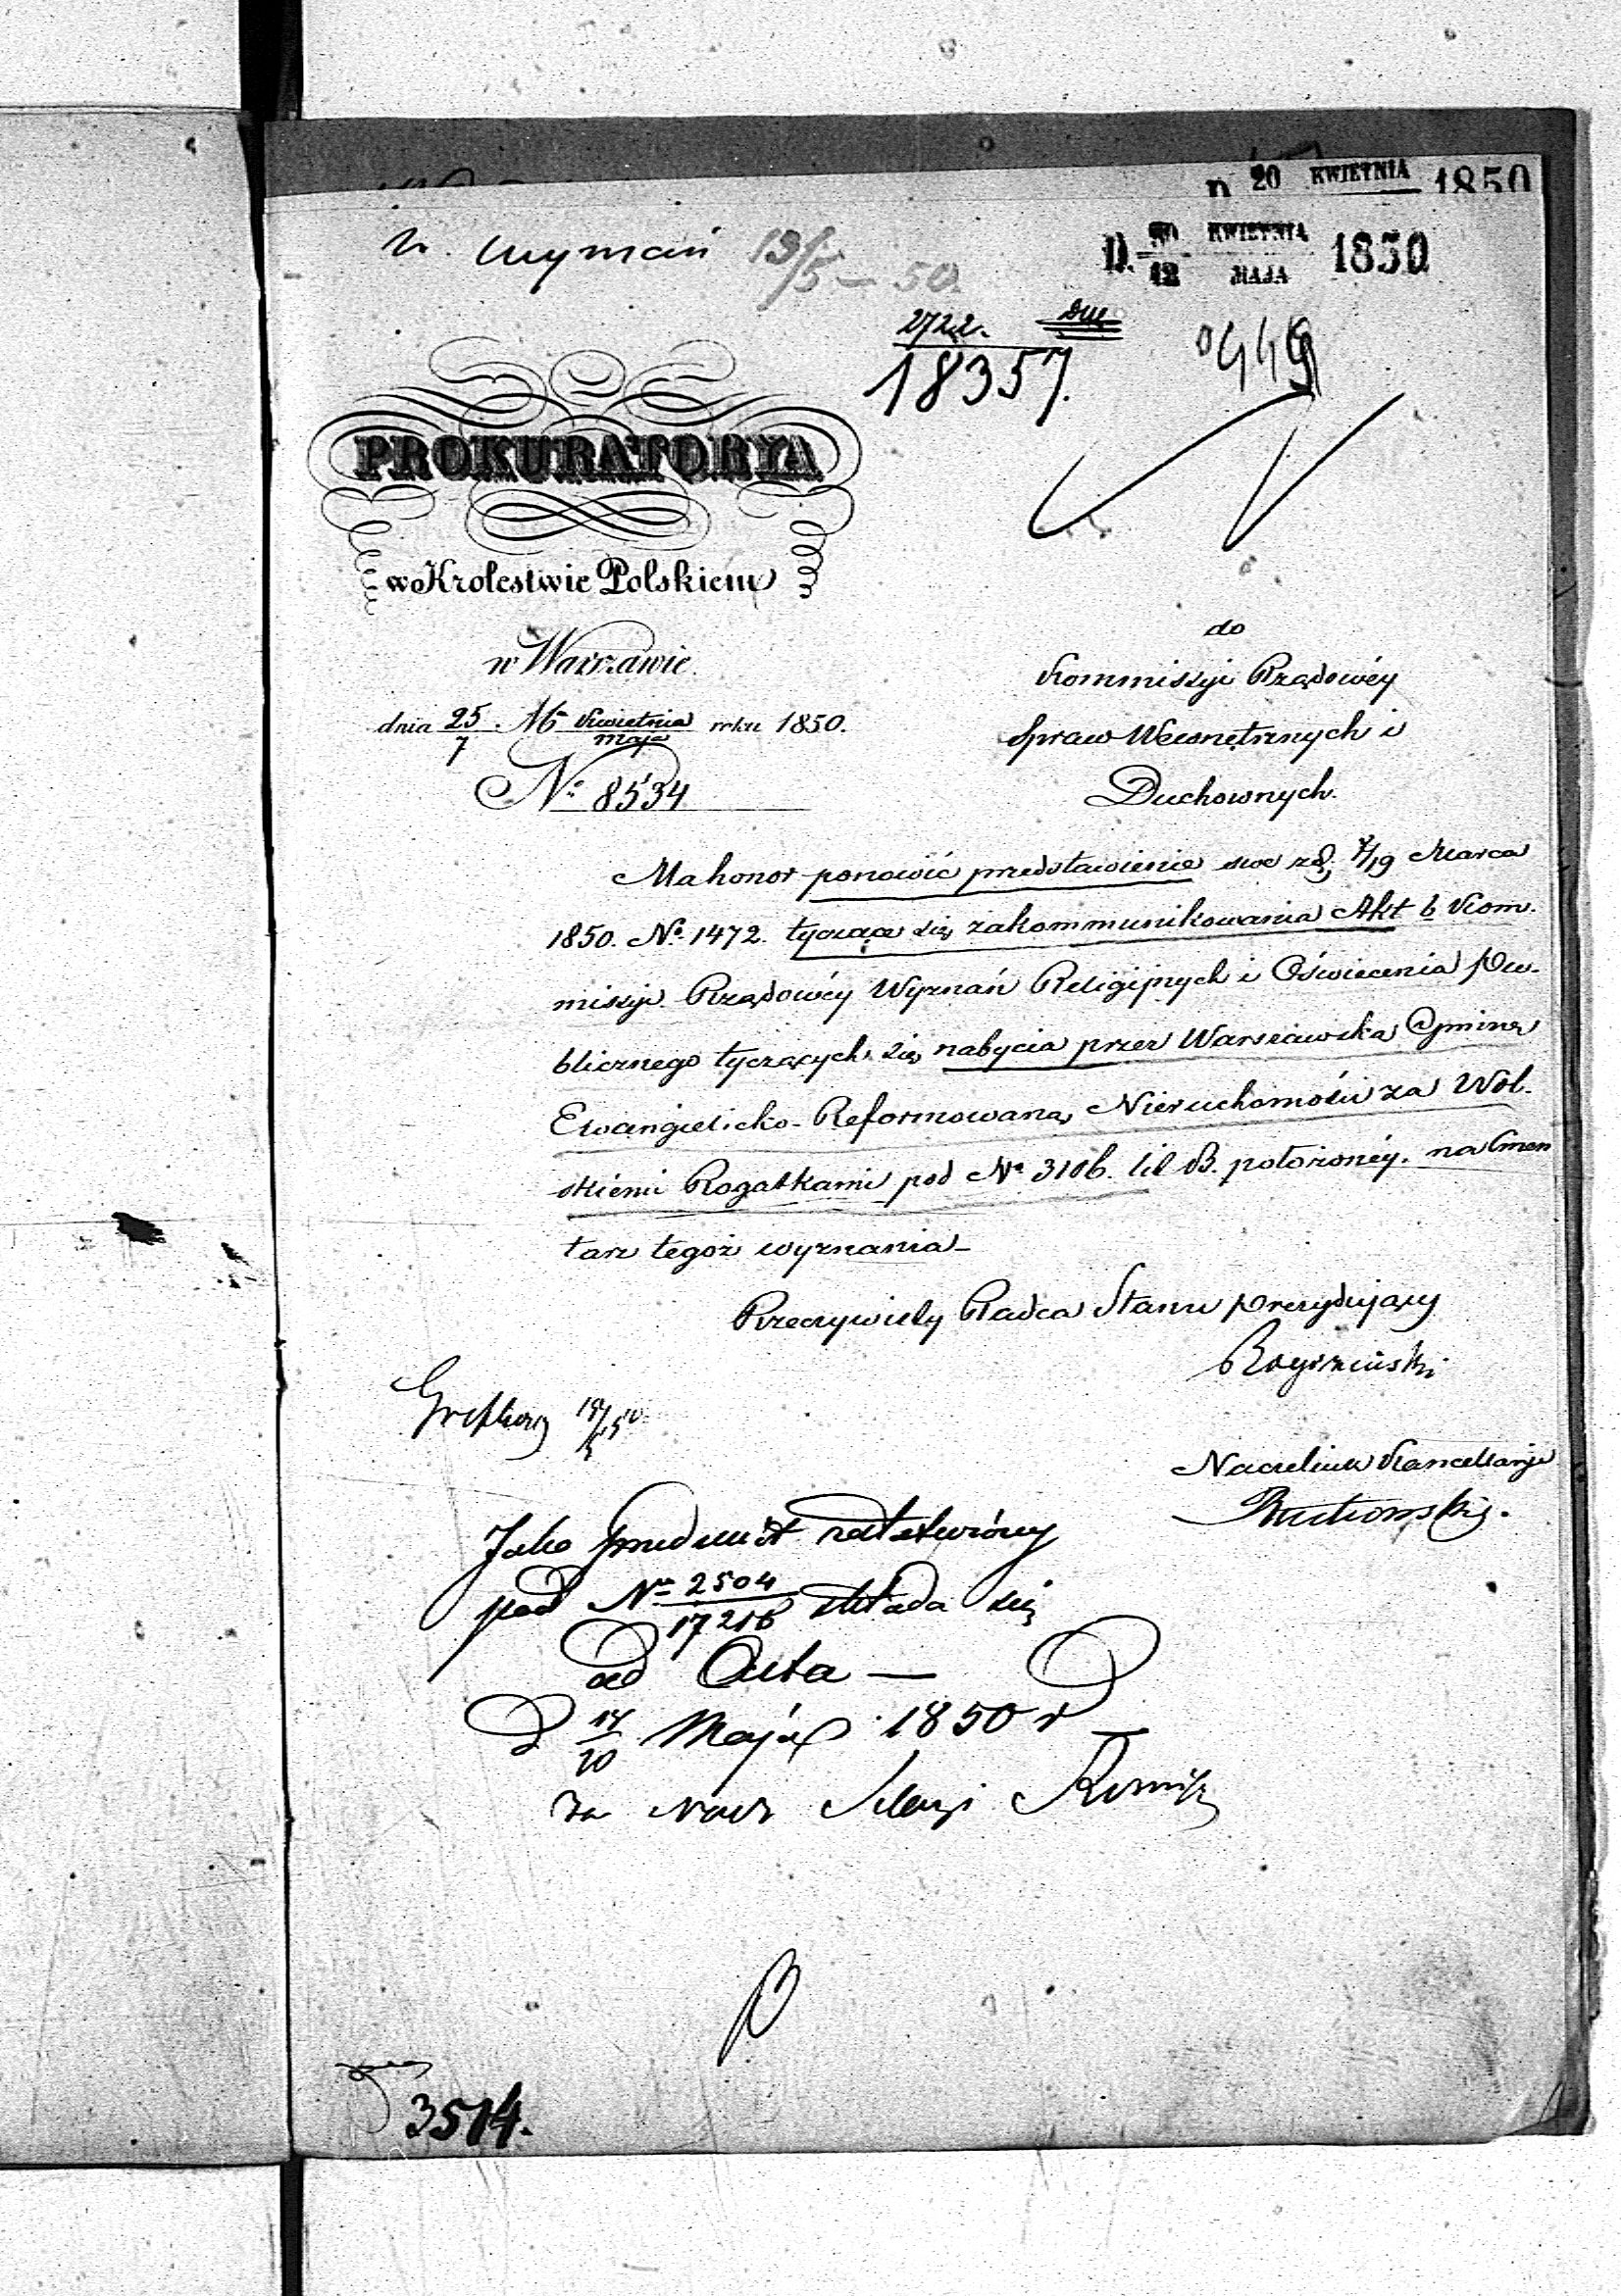 D. 20 KWIETNIA 1850
D. 30/12 KWIETNIA/MAJA 1850
W. Wyznań 13/5 – 50
2722.
18357.
PROKURATORYA
w Krolestwie Polskiem
w Warszawie
dnia 25/7 Mca Kwietnia/Maja roku 1850.
No 8534
do
Kommissyi Rządowéy
Spraw Wewnętrznych i
Duchownych.
Ma honor ponowić przedstawienie swe z d. 7/19 Marca
1850. No 1472. tyczące się zakommunikowania Akt b. Kom-
missyi Rządowéy Wyznań Religijnych i Oświecenia Pu-
blicznego tyczących się nabycia przez Warszawską Gminę
Ewangielicko-Reformowaną Nieruchomości za Wol-
skiémi Rogatkami pod No 3106. lit B. położonéy. na Cmen
tarz tegoż wyznania –
Rzeczywisty Radca Stanu Prezydujący
Naczelnik Kancellaryi
Jako przedmiot załatwiony
pod No 2504/17216 składa się
ad Acta —
D 14/20 Maja 1850 r
za Nacz
3514.